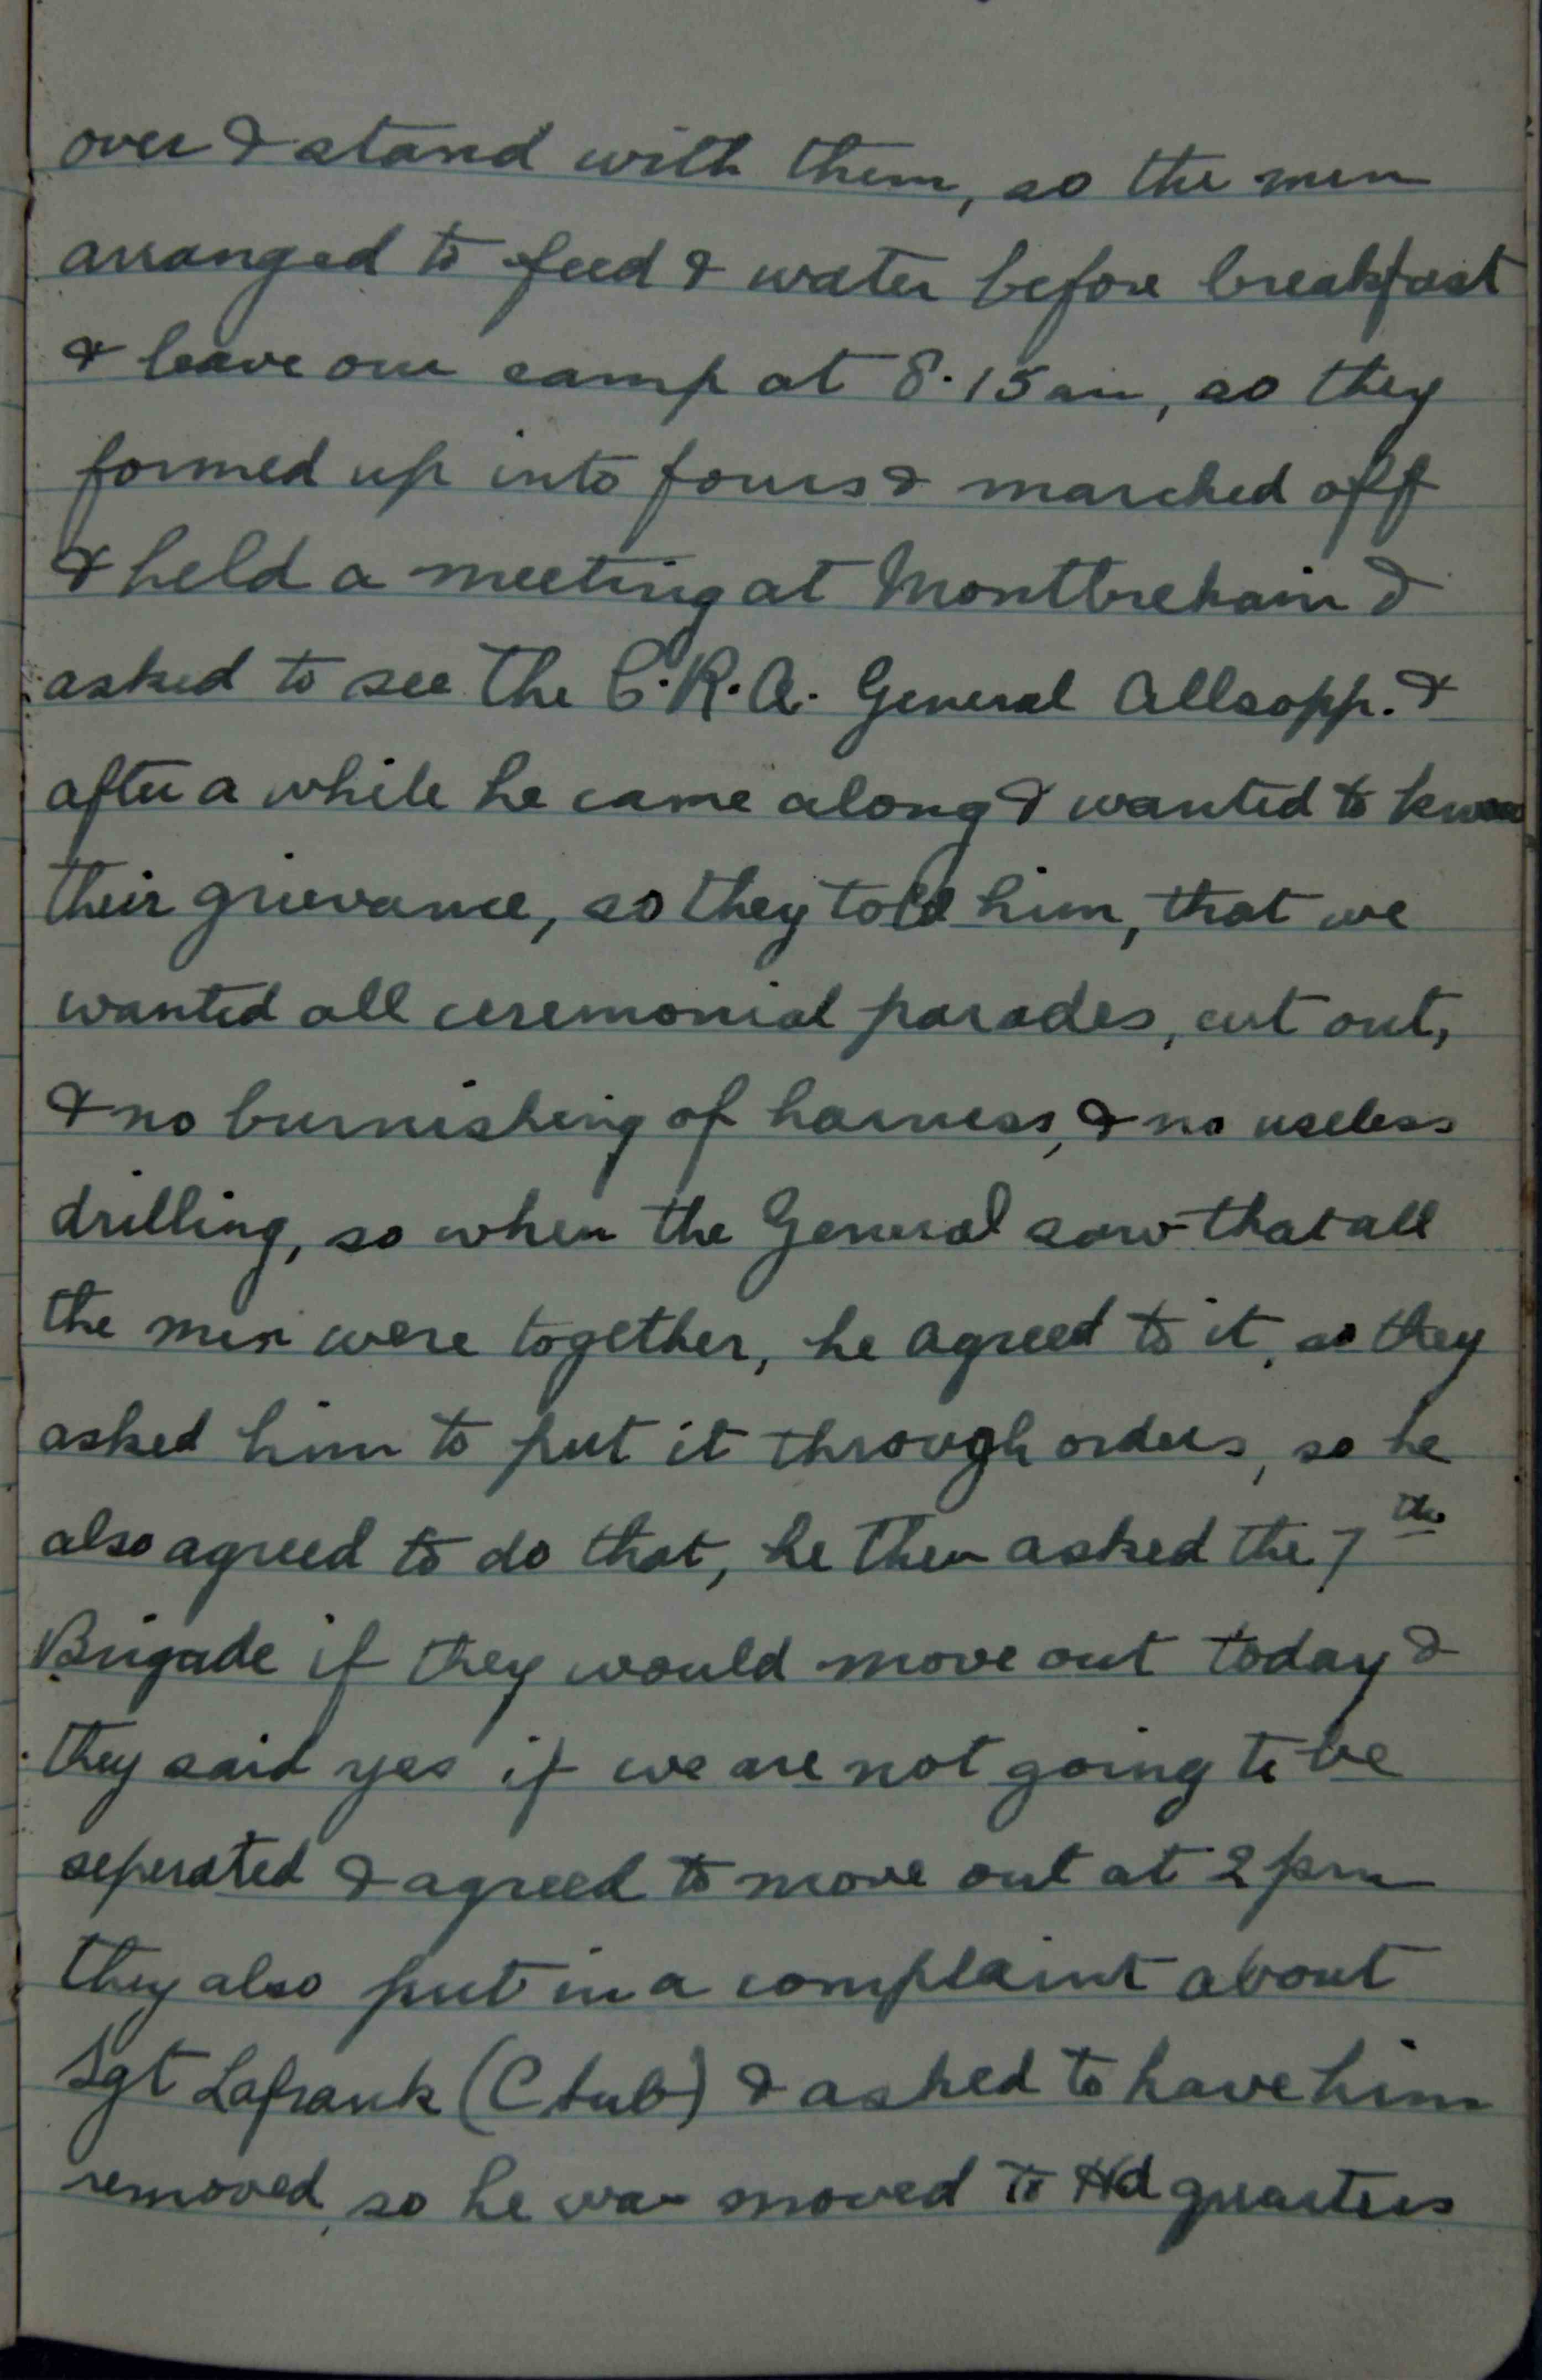 over & stand with them, so the men
arranged to feed & water before breakfast
& leave our camp at 8.15am, so they
formed up into fours & marched off
& held a meeting at Montbrehain &
asked to see the C.R.A. General Allsopp. &
after a while he came along & wanted to know
their grievance, so they told him, that we
wanted all ceremonial parades, cut out,
& no burnishing of harness, & no useless
drilling, so when the General saw that all
the men were together, he agreed to it, so they
asked him to put it through orders, so he
also agreed to do that, he then asked the 7th
Brigade if they would move out today &
they said yes if we are not going to be
seperated & agreed to move out at 2pm
they also put in a complaint about
Sgt Lafrank (C Sub) & asked to have him
removed, so he was moved to Hd quarters